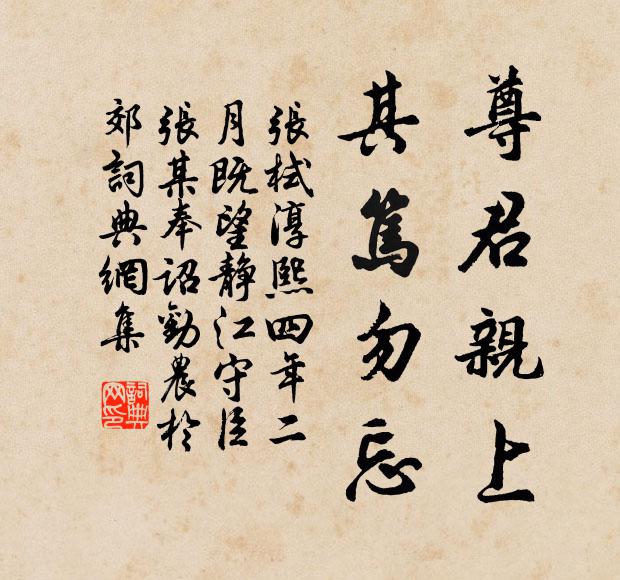 尊君親上
其篤勿忘
張栻淳熙四年二
月既望靜江守臣
張某奉詔勸農於
郊詞典網集
詞典
网印